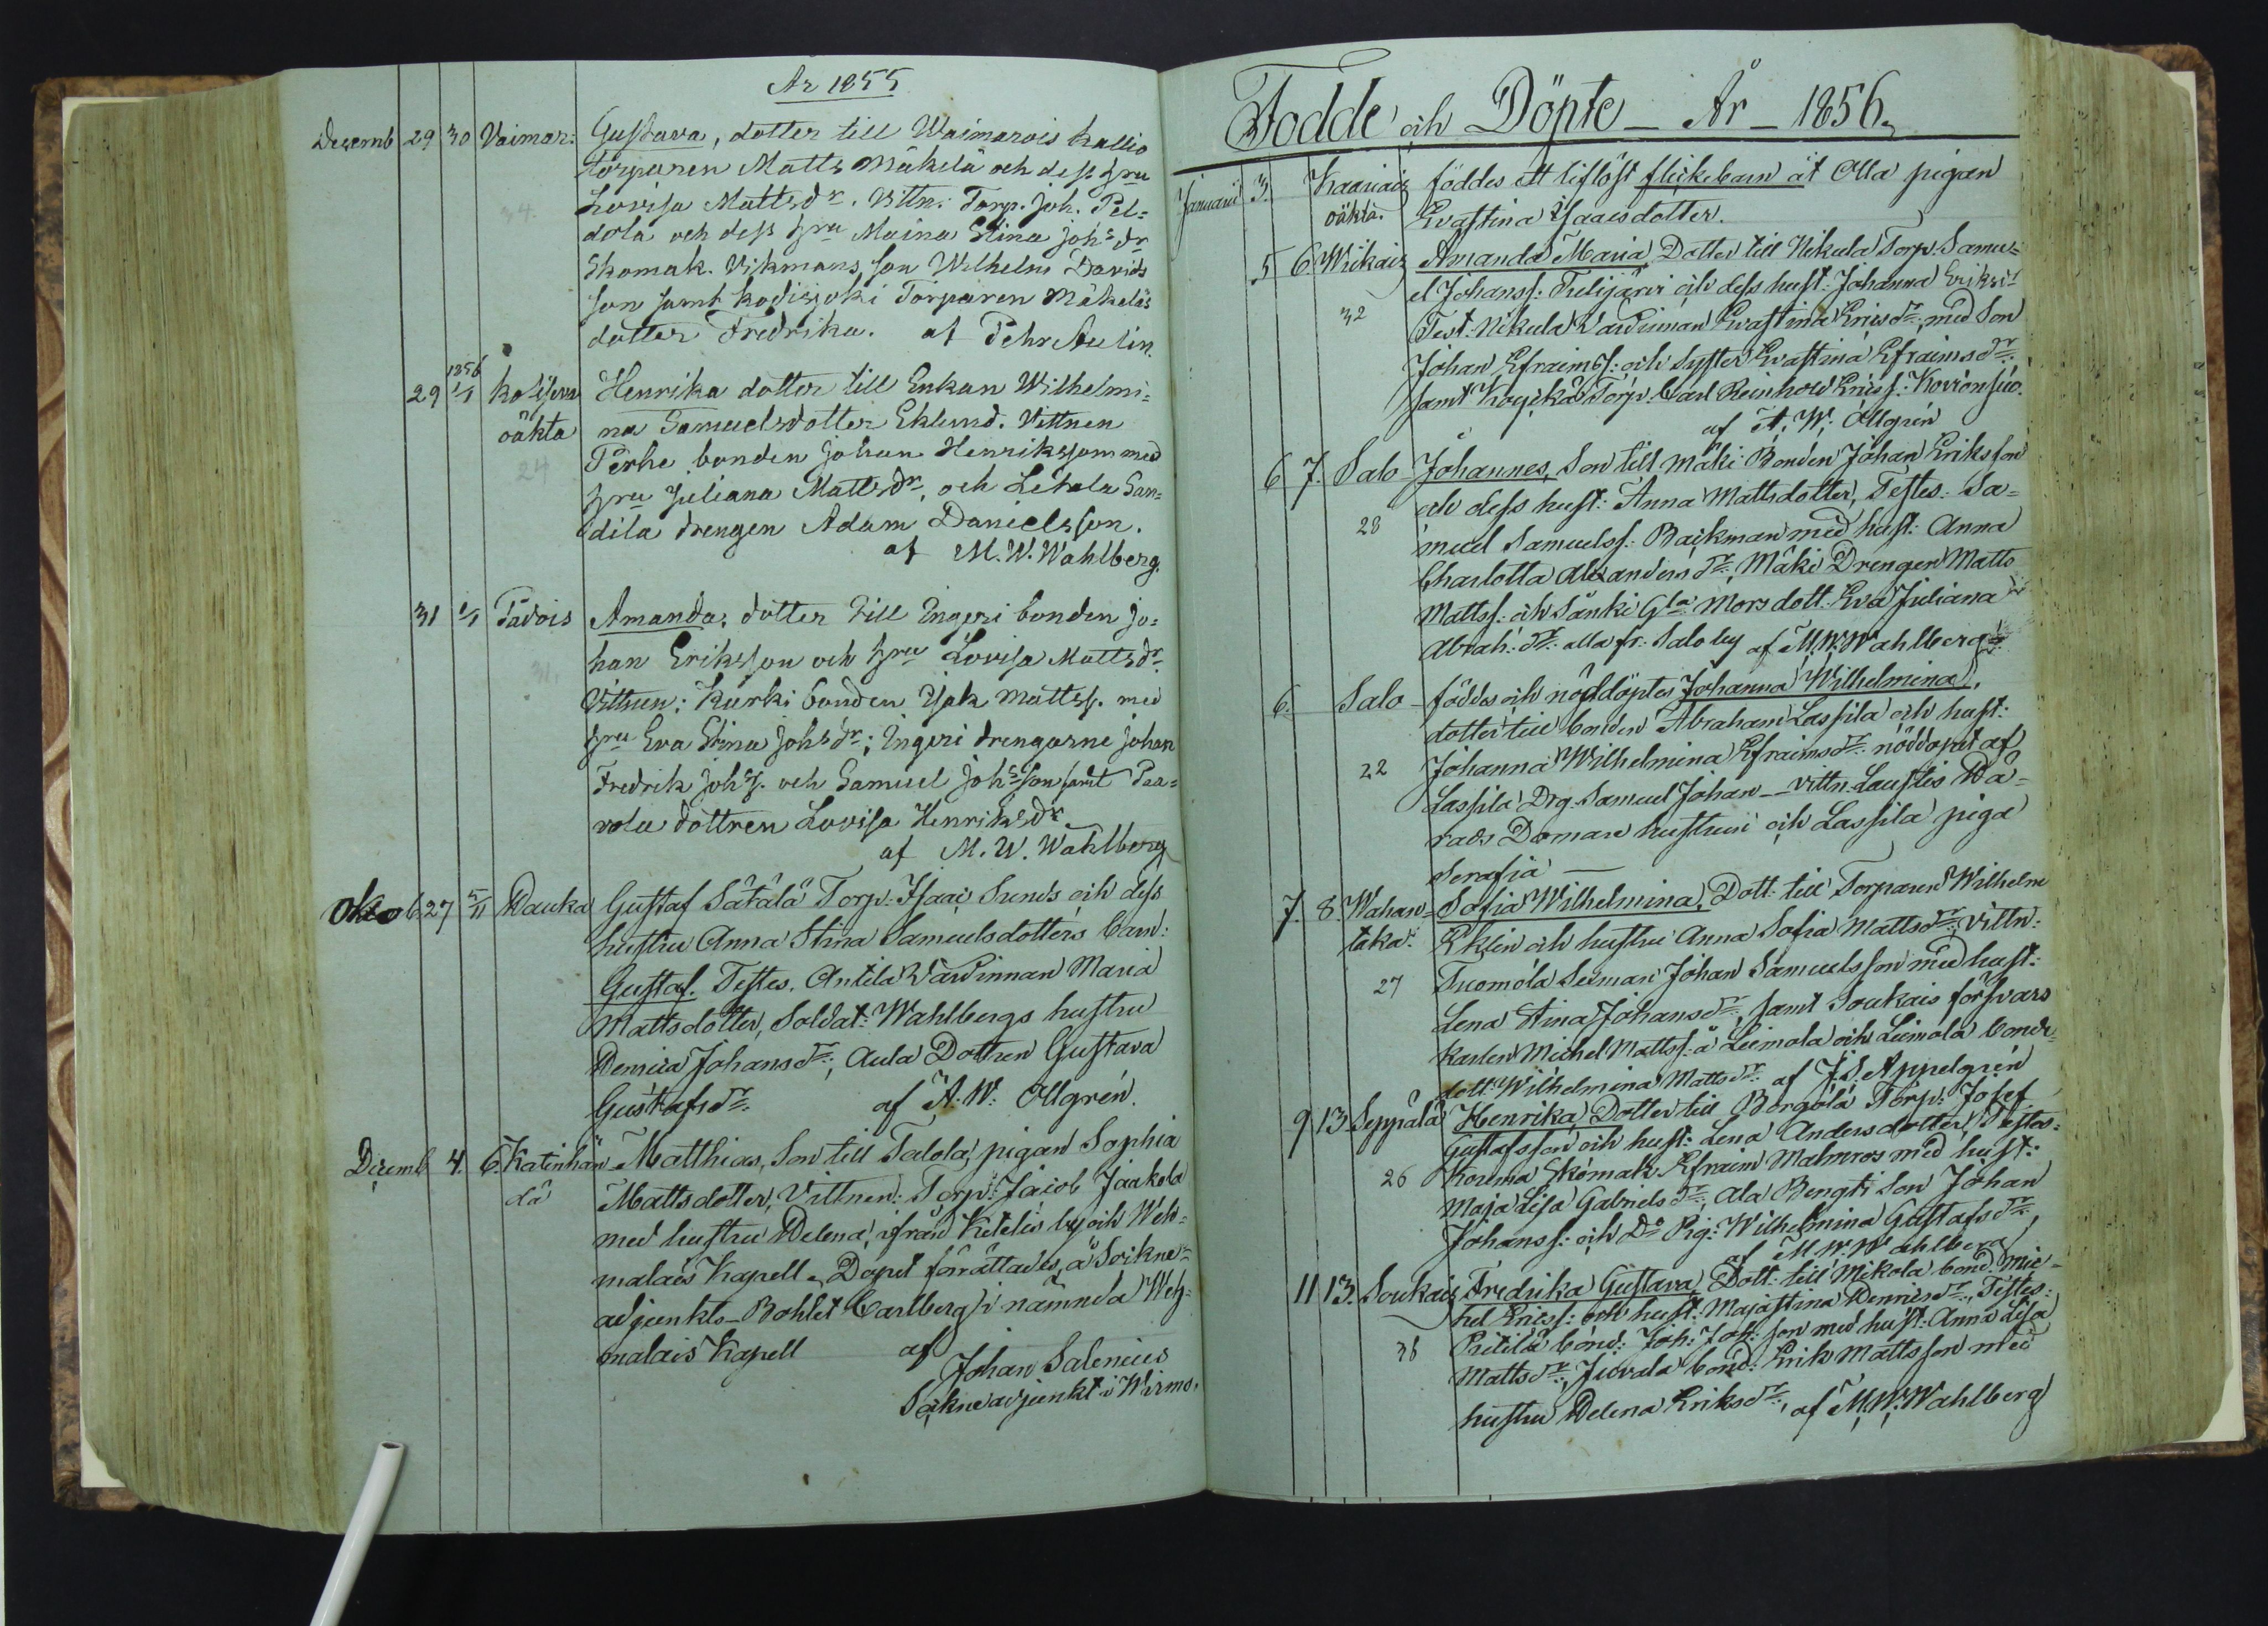 År 1855
Decemb 29 30 Vaimar: Gustava, dotter till Waimarois Kallio
torparen Matts Mäkelä och dess hru
34. Lovisa Mattsdr. Vittn: Torp. Joh. Pel=
dola och dess hru Maina Stina Johs dr
Skomak. Vikmans, son Wilhelm Davids
son samt kodisjoki Torparen Mäkeläs
dotter Fredrika. af Pehr Aulin.
29 1856 1/1 Henrika dotter till Enkan Wilhelmi=
oäkta na Samuelsdotter Eklund. Vittnen
24 Perhe bonden Johan Henriksson med
hru Juliana Mattsdr, och Letala San=
dila drengen Adam Danielsson.
af M. W. Wahlberg.
31 1/1 Padois Amanda, dotter till Ingeri bonden Jo=
han Eriksson och hru Lovisa Mattsdr
31. Vittnen: Kurki bonden Isak Mattss. med
hru Eva Stina Johsdr; Ingeri drengarne Johan
Fredrik Johss. och Samuel Johsson samt Paa=
vola dottren Lovisa Henriksdr
af M. W. Wahlberg
Oktob 27 5/11 Hauka Gustaf Sätälä Torp. Isaac Sunds och dess
hustru Anna Stina Samuelsdotters barn:
Gustaf. Testes. Antila Värdinnan Maria
Mattsdotter, Soldat: Wahlbergs hustru
Henrica Johansdr:, Aula Dottren Gustava
Gustafsdr: af A. W: Ollgrén.
Decemb 4. 6. Katinhän Matthias, Son till Talola, pigan Sophia
dä Mattsdotter, Vittnen: Torp: Jacob Jaakola
med hustru Helena, ifrån Ketelis by och Weh=
malais Kapell. Dopet förrättades, å Sockne=
adjunkts-Bohlet Carlberg i nämnda Weh=
malais Kapell af Johan Salenius
Sockneadjunkt i Wirmo.
Födde och Döpte – År – 1856.
Januarii 3. Kaariais födde ett liflöst flickebarn åt Olla pigan
oäkta. Evastina Isaacsdotter.
5 6 Amanda Maria, Dotter till Nikula Torp. Samu=
el Johanss: Tulijärvi och dess hust: Johanna Eriksdr
32 Test. Nikula Värdinnan Evastina Ericsdr:, med Son
Johan Efraimss: och Syster Evastina Efraimsdr:
samt Torp. Carl Reinhold Ericss:
af A. W: Ollgrén
6 7. Salo – Johannes, Son till Mäki Bonden Johan Eriksson
och dess hust: Anna Mattsdotter, Testes: Sa=
28 muel Samuelss: Backman med hust: Anna
Charlotta Alexandersdr:, Mäki Drengen Matts
Mattss: och Sänki Gla Mors dott. Eva Juliana
Abrah: dr: alla fr: Salo by af M. W. Wahlberg
6. Salo – föddes och nöddöptes Johanna Wilhelmina,
dotter till bonden Abraham Lassila och hust:
22 Johanna Wilhelmina Efraimsdr: nöddöpt af
Lassila Drg. Samuel Johan – vittn. Laustis Hä=
rads Doman hustrun och Lassila piga
Serafia –
7. 8 Wahan= Sofia Wilhelmina, Dott: till Torparen Wilhelm
taka. Eklin och hustru Anna Sofia Mattsdr: vittn:
27 Tuomola Seman Johan Samuelsson med hust:
Lena Stina Johansdr:, samt Soukais försvars
karlen Michel Mattss: å Leimola och Leimola bonde=
dott: Wilhelmina Mattsdr: af J. S. Appelgrén
9 13. Seppälä Henrika, Dotter till Borgola Torp: Josef
Gustafsson och hust: Lena Andersdotter, Testes:
26 Kouma Skomak. Efraim Malmros med hust:
Maja Lisa Gabrielsdr:, Ala Bengti Son Johan
Johanss: och Do Pig: Wilhelmina Gustafsdr:,
af M. W. Wahlberg
11 13. Soukais Fredrika Gustava, Dott: till Mikola bond: Mic=
hel Ericss: och hust: Majastina Henricsdr:, Testes:
36 Pietilä bond: Joh: Joh: son med hust: Anna Lisa
Mattsdr:, Juvala bond: Erik Mattsson med
hustru Helena Eriksdr:, af M. W. Wahlberg